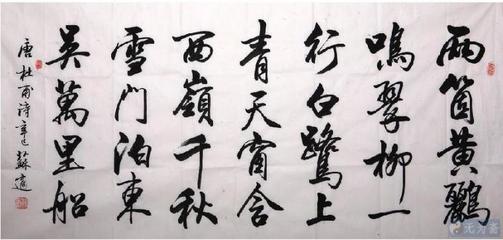 兩箇黃鸝
鳴翠柳一
行白鷺上
青天窗含
西嶺千秋
雪門泊東
吳萬里船
唐杜甫詩辛巳蘇適
无为斋